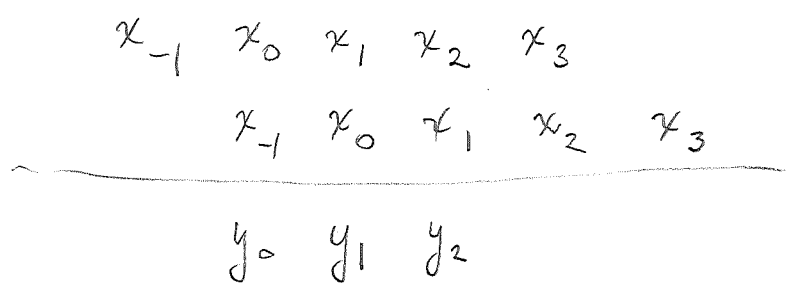 x₋₁ x₀ x₁ x₂ x₃
x₋₁ x₀ x₁ x₂ x₃
y₀ y₁ y₂